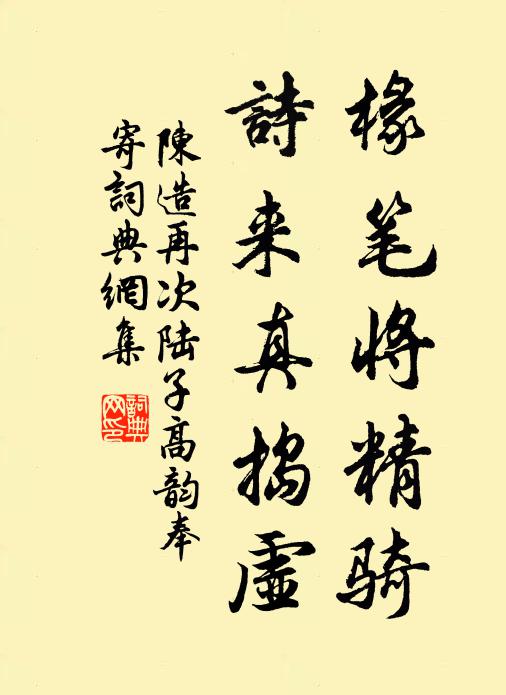 椽笔将精骑
詩来真捣虚
陳造再次陆子高韵奉
寄詞典網集
詞典
网印